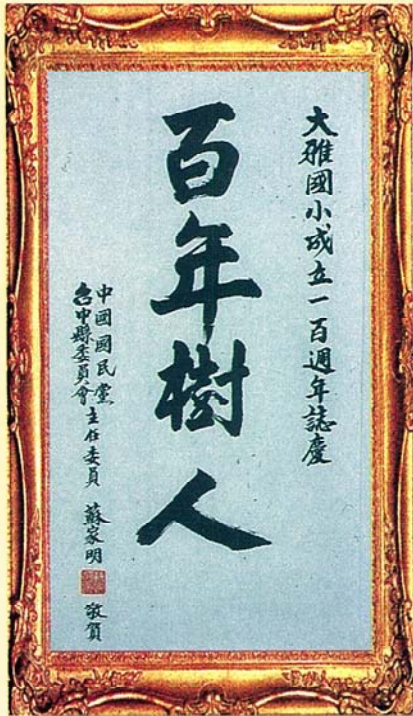 大雅國小成立一百週年誌慶
百年樹人
中國國民黨
台中縣委員會
主任委員 蘇家明 敬賀